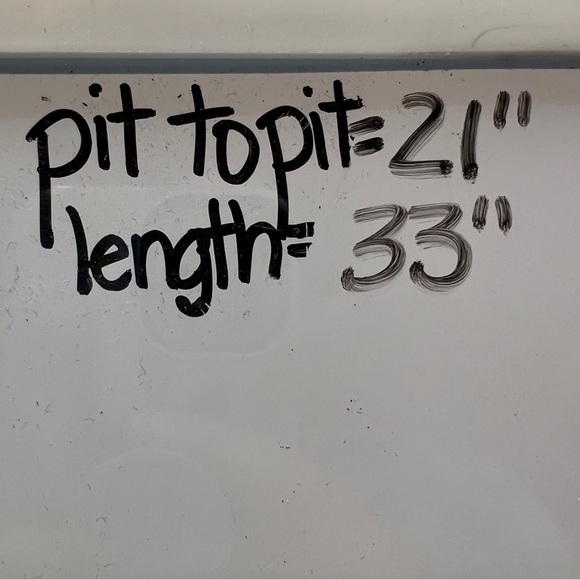 pit to pit= 21"
length= 33"